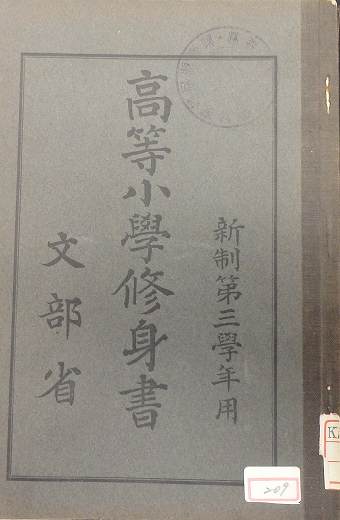 新制第三學年用
高等小學修身書
文部省
209